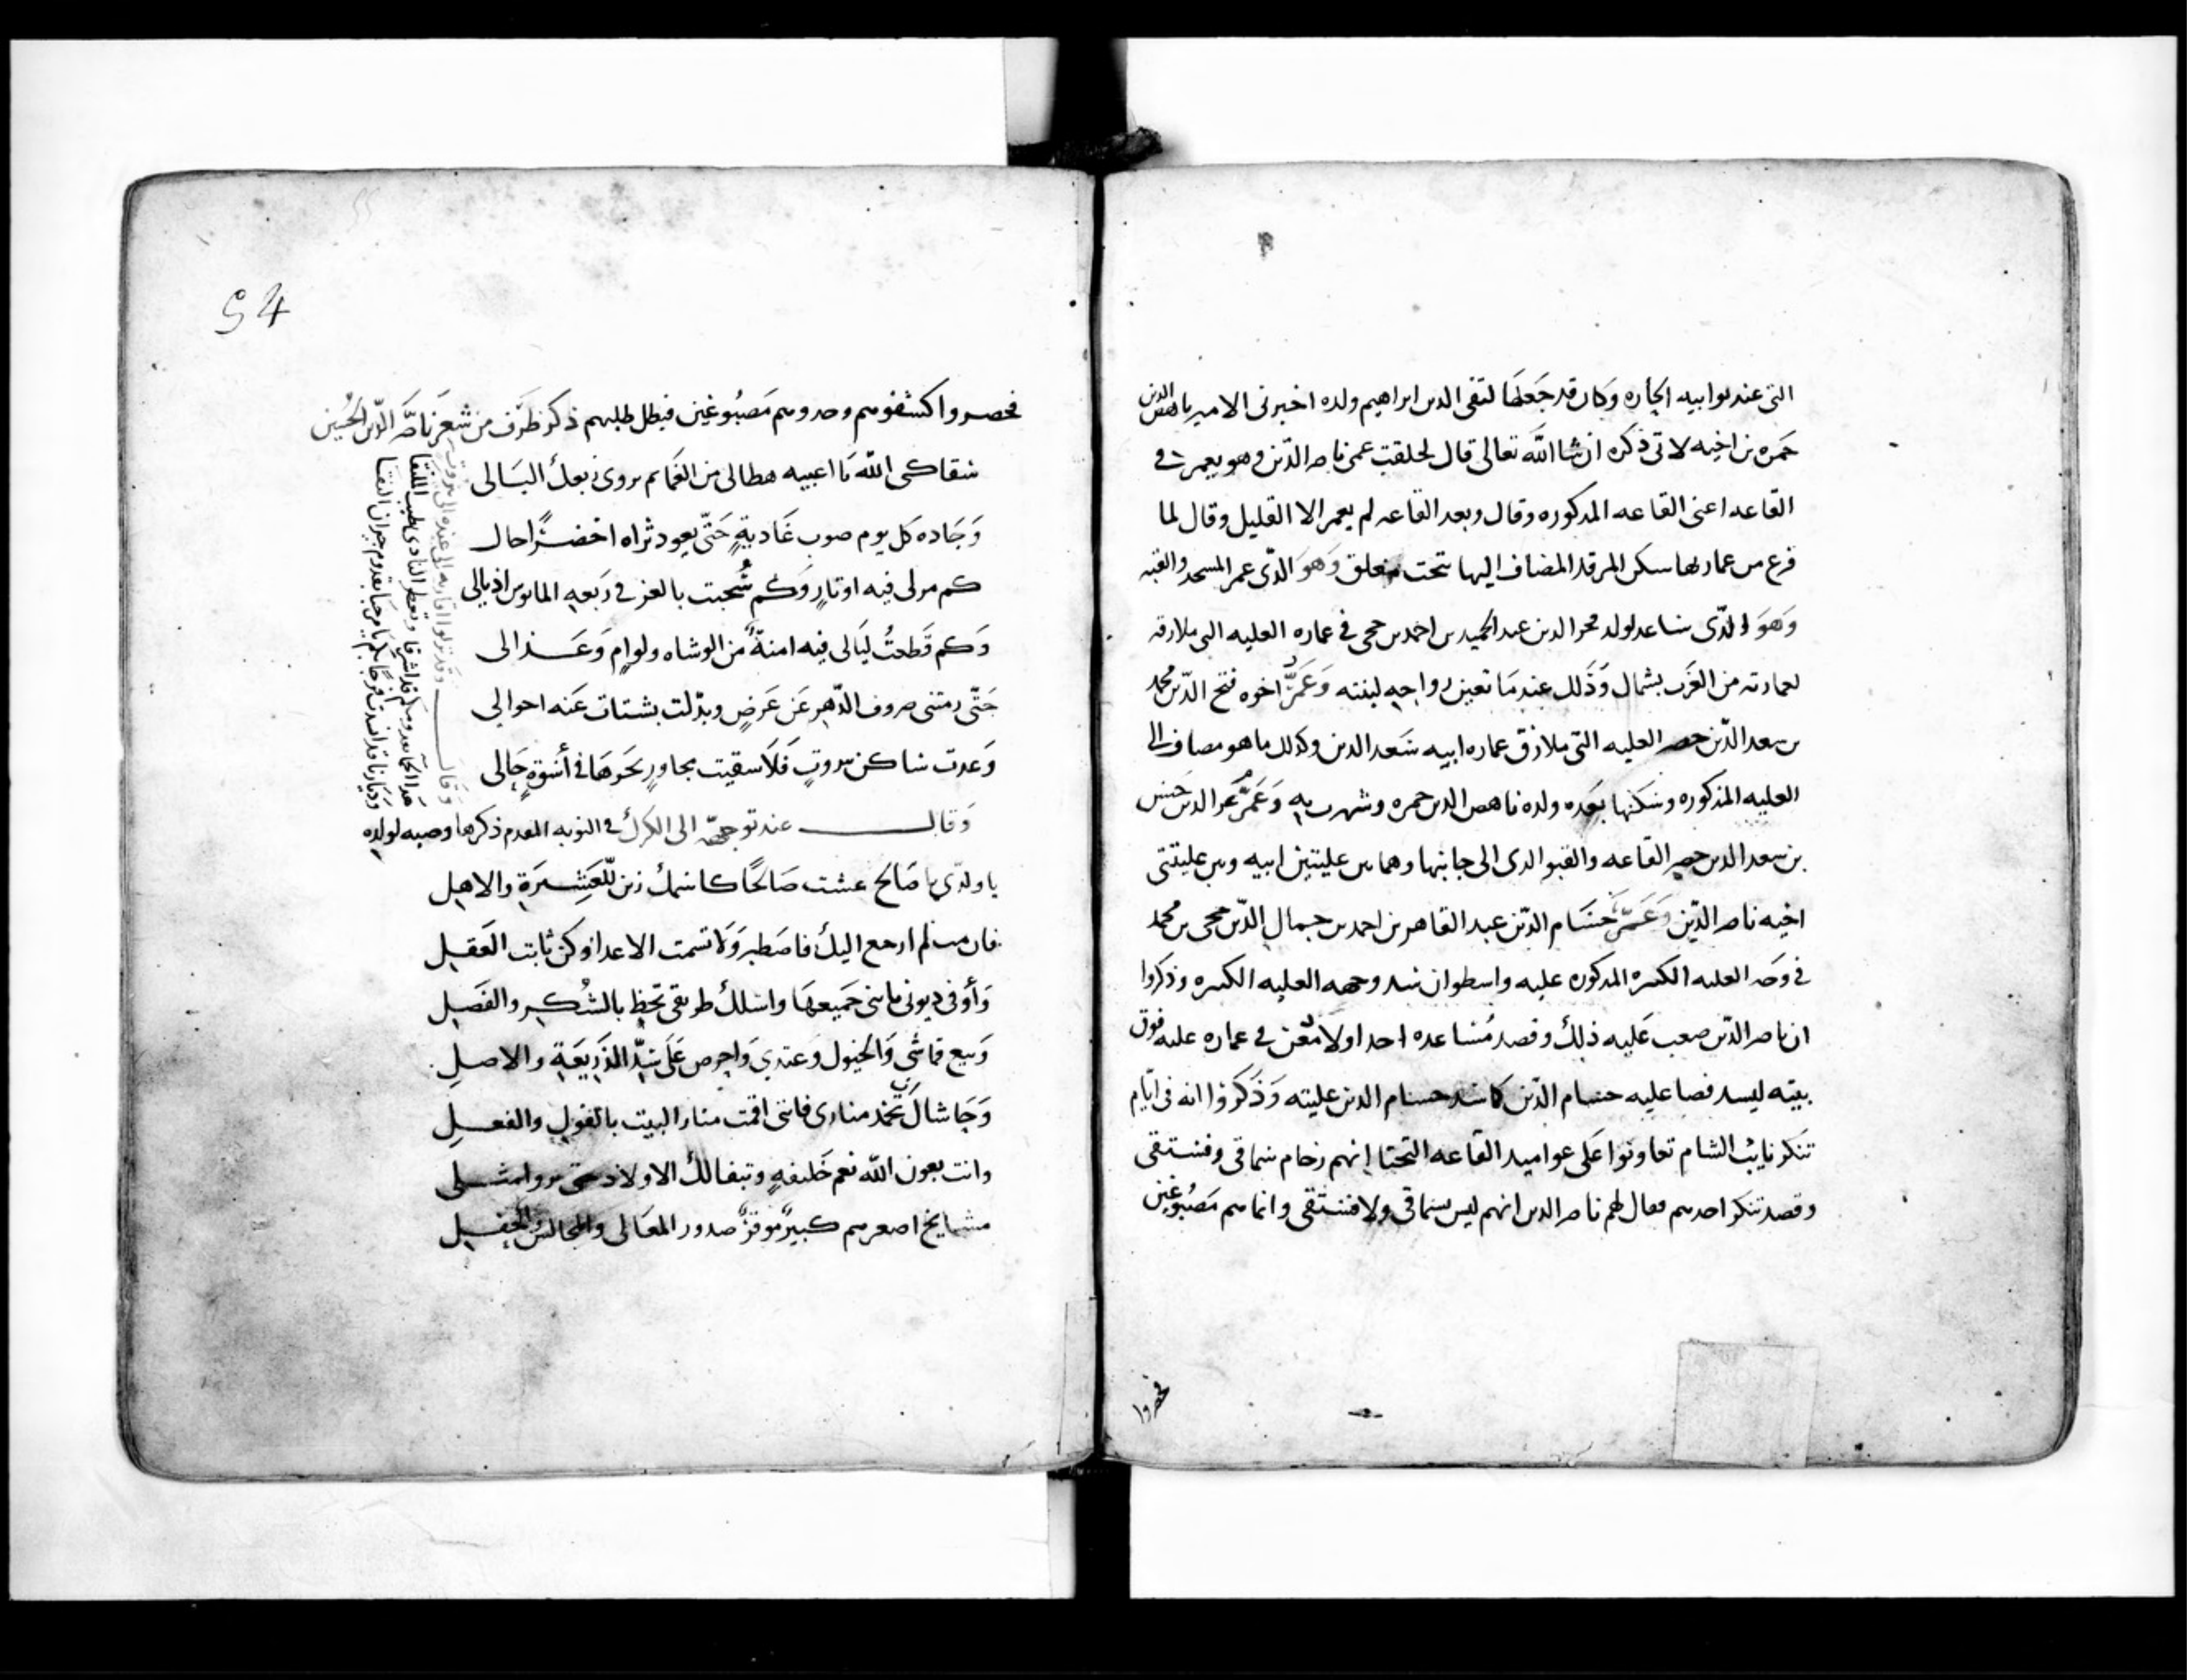 التى عند بوابيه الجاره وكان قد جعلها لتقى الدين ابراهيم ولده اخبرنى الامير ناهض الدين
حمزه بن اخيه لاتى ذكره ان شا الله تعالى قال لحلقت عمى ناصر الدين وهو يعمر فى
القاعه اعنى القاعه المذكوره وقال وبعد القاعه لم يعمر الا القليل وقال لما
فرغ من عمارتها سكن المرقد المضاف اليها تحت معلق وهو الذى عمر المسجد والقبه
وهو الذى ساعد لولد عبد الحميد بن احمد بن حجى فى عماره العليه التى ملازقه
لعمارته من الغرب بشمال وذلك عندما تعين زواجه لبنته وعمر اخوه فتح الدين محمد
بن سعد الدين حصر العليه التى ملازق عماره ابيه سعد الدين وكذلك ما هو مضاف الى
العليه المذكوره وسكنها بعده ولده ناهض الدين حمزه وشهرت به وعمر الدين حسن
بن سعد الدين حصر القاعه والقبو الذى الى جانبها وهما بين عليتين ابيه وبين عليتى
اخيه ناصر الدين وعمر حسام الدين عبد القاهر بن احمد بن جمال الدين حجى بن محمد
فى وجه العليه الكبيره المذكوره عليه واسطوان سد وجهه العليه الكبيره وذكروا
ان ناصر الدين صعب عليه ذلك وقصد مساعده احد اولا معن فى عماره عليه فوق
بيته ليسد فضا عليه حسام الدين كما سد حسام الدين عليته وذكروا انه فى ايام
تنكز نايب الشام تعاونوا على عواميد القاعه التحتا انهم رخام سماقى وفستقى
وقصد تنكز احدهم فقال لهم ناصر الدين انهم ليس سماقى ولا فستقى وانما هم مصبوغين
فحضروا
54
فحضروا اكشفوهم وجدوهم مصبوغين فبطل طلبهم ذكر ظرف من شعر ناصر الدين الحسين
سقاكى الله يا اعبيه هطالى من الغمايم يروى ربعك البالى
وجاده كل يوم صوب غادية حتى يعود ثراه اخضرا حال
كم مر لى فيه اوتار وكم سحبت بالعز فى ربعه المانوس اذيالى
وكم قطعت ليالى فيه امنة من الوشاه ولوام وعذالى
حتى رمتنى صروف الدهر عن عرض وبدلت بشتات عنه احوالى
وعدت ساكن بيروت فلا سقيت بجاور بحرها فى أسوة حالى
وقال عند توجهه الى الكرك فى النوبه المقدم ذكرها وصيه لولده
يا ولدى يا صالح عشت صالحا كاسمك زين للعشيرة والاهل
فان مت لم ارجع اليك فاصطبر ولا تشمت الاعدا وكن ثابت العقل
وأوفى ديونى يا بنى جميعها واسلك طريقى تحظ بالشكر والفضل
وبيع قماشى والخيول وعدتى واحرص على سد الذريعة والاصل
وحاشاك تخمد منارى فاننى اقمت منار البيت بالقول والفعل
وانت بعون الله نعم خليفه وتبقا لك الاولاد حتى يروا مثلى
مشايخ اصغرهم كبير موقر صدور المعالى والمجالس والحفل
وقال وقد نزلوا اقاربه الى عنده الى بيروت
هذا الحما بعد وحكم قد اشرقا وتعطر النادى بطيب اللقا
وديارنا قد انشدت فرحا بكم يا مرحبا بقدوم جيران النقا